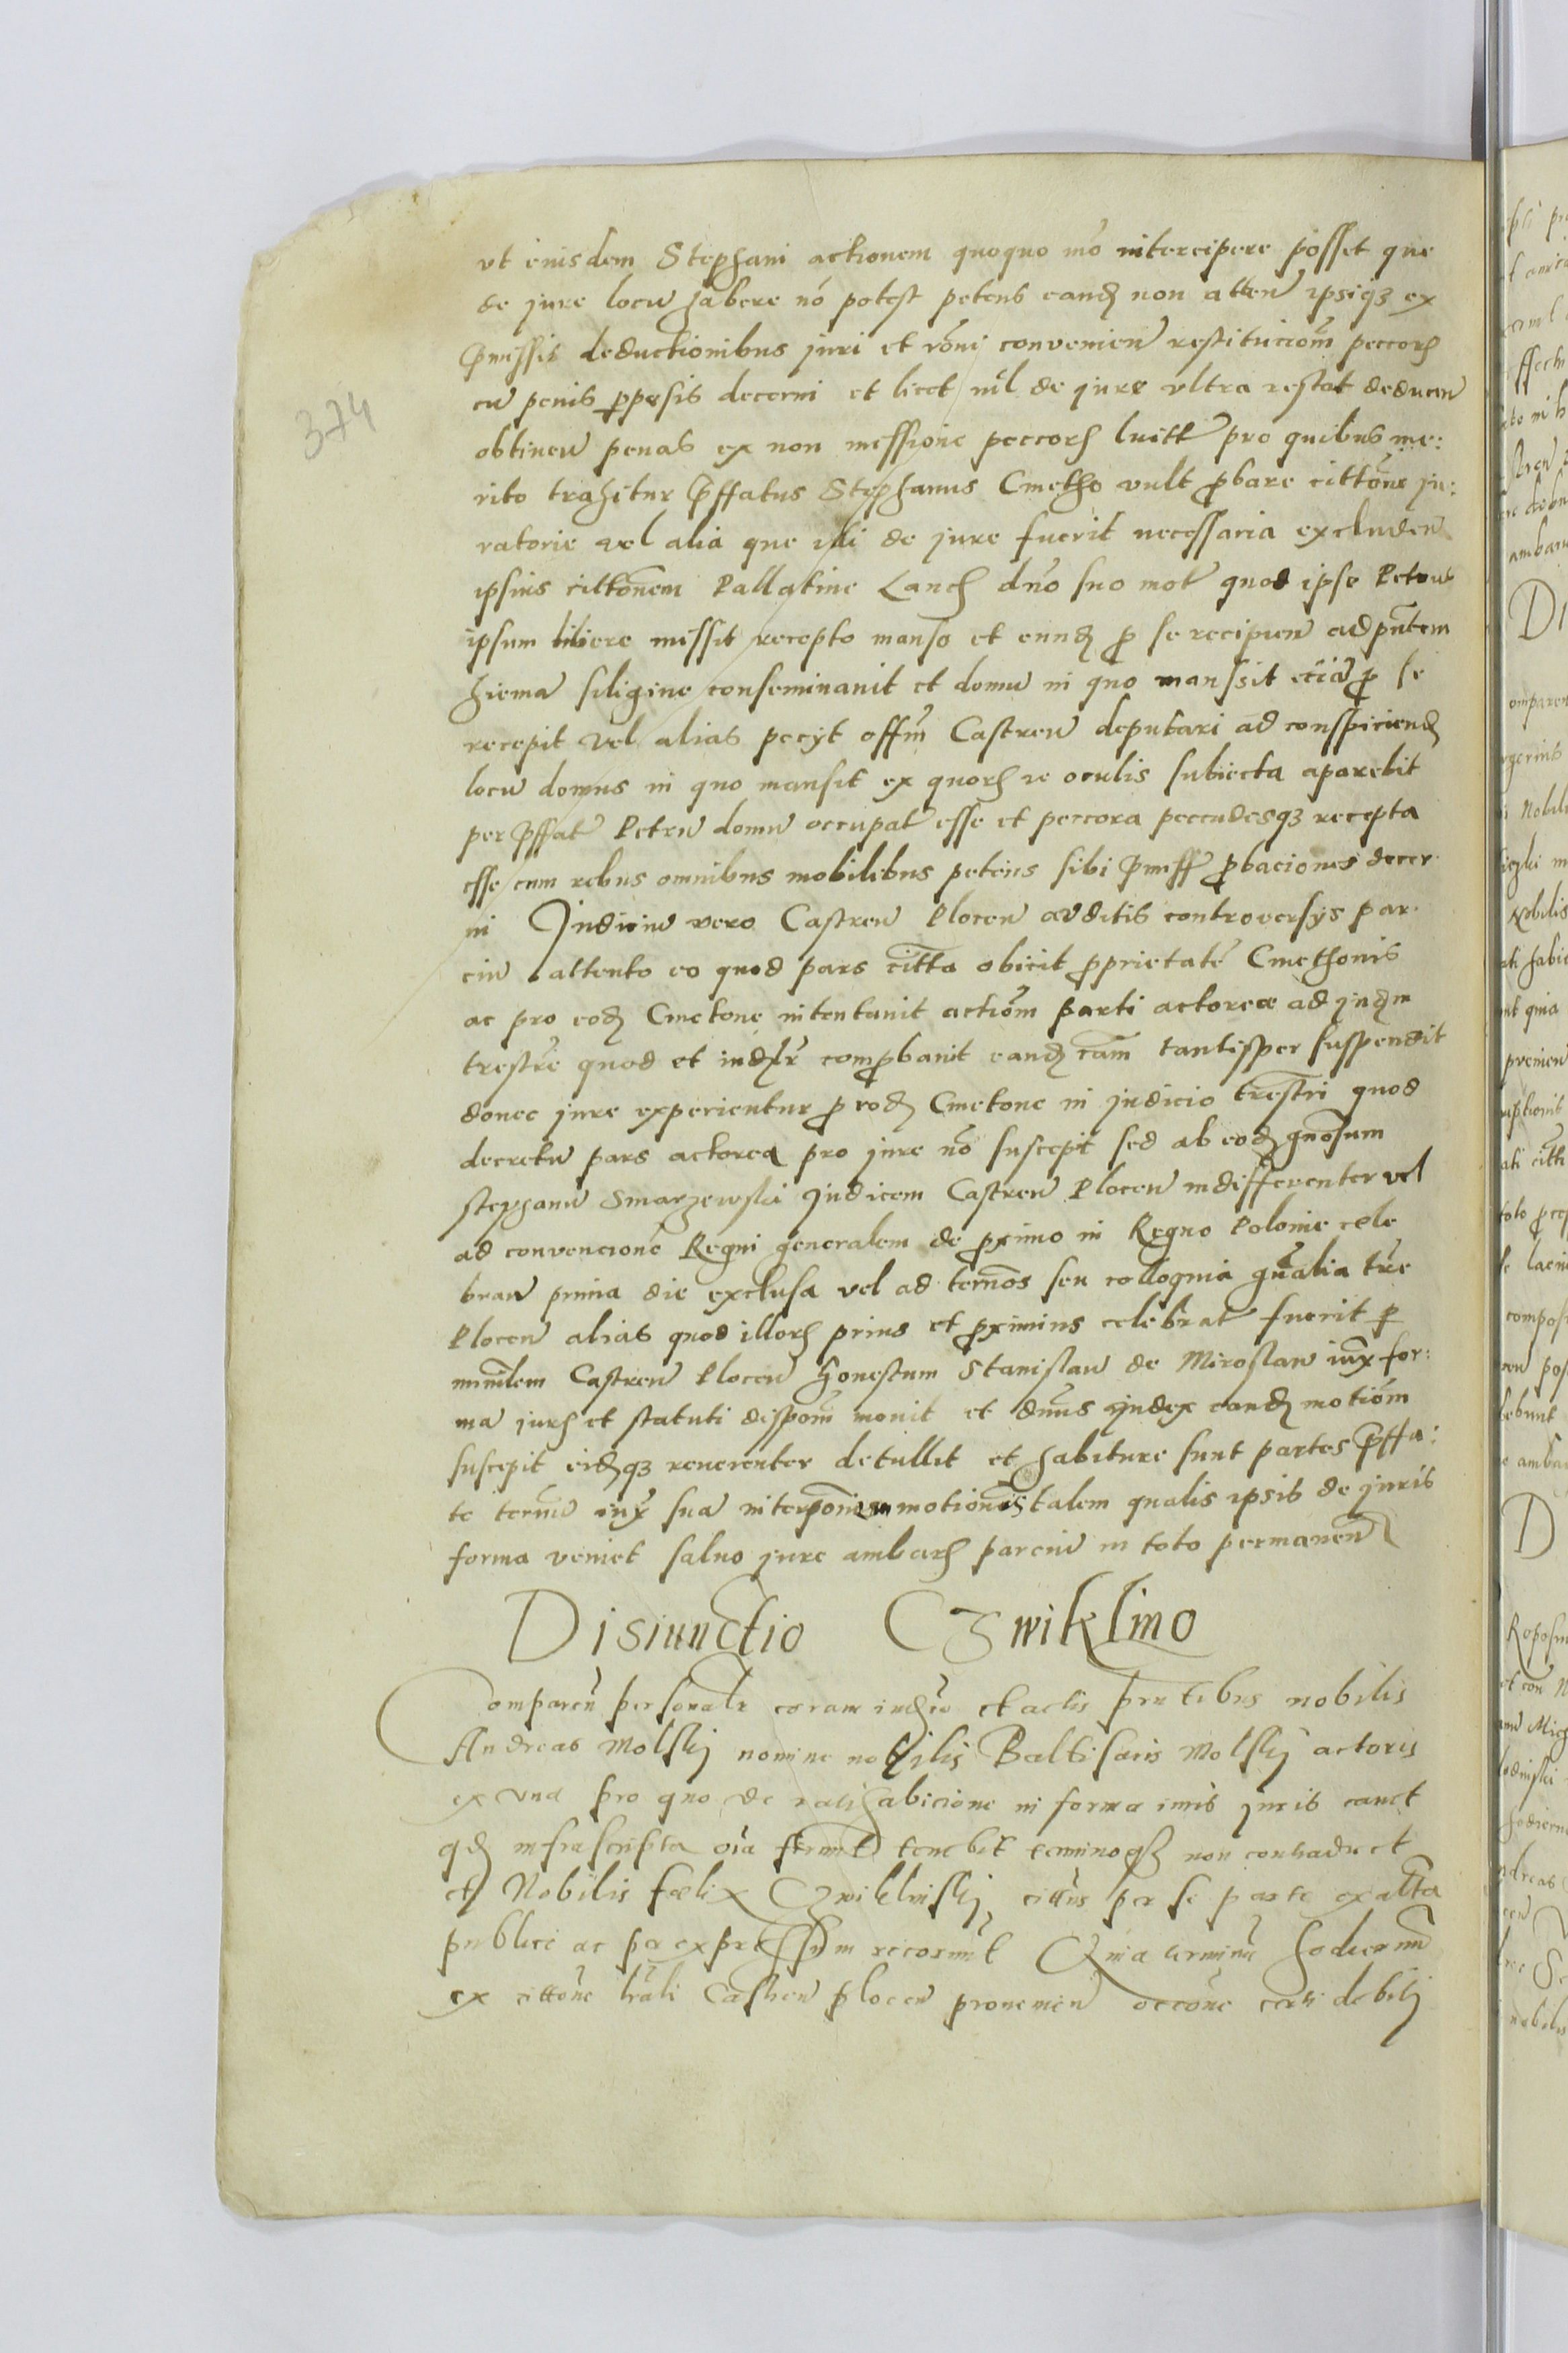 374
vt eiusdem Stephani actionem quoquo mō intercipere posset que
de jure locu habere nō potest petens eandꝫ non atten ipsiqꝫ ex
p̄missis deductionibus juri et rōni convenien restitucionē peccorꝫ
cu penis ꝑpesis decerni et licet nil de jure vltra restat deducen
obtinen penas ex non missione peccorꝫ luitt pro quibus me:
rito trahitur p̄ffatus Stephanus Cmetho vult ꝓbare cittōne ju:
ratorie vel alia que ibi de jure fuerit necessaria excluden
ipsius cittōnem Pallatine Lancꝫ dno suo mot quod ipse Petrus
ipsum libere missit recepto manso et eundꝫ ꝓ se recipien ad pn̄tem
hiema siligine conseminauit et domu in quo manssit eciā ꝓ se
recepit vel alias pecijt offm Castren deputari ad conspiciendꝫ
locu domus in quo mansit ex quorꝫ re oculis subiecta aparebit
per p̄ffat Petru domu occupat esse et peccora peccudesqꝫ recepta
esse cum rebus omnibus mobilibus petens sibi p̄miss ꝓbaciones decer
ni Judiciu vero Castren Plocen auditis controversijs par
ciu attento eo quod pars citta obicit ꝓprietatē Cmethonis
ac pro eodꝫ Cmetone intentauit actiōm parti actoree ad judꝫm
trestrē quod et indꝫlr comꝓbauit eandꝫ cam tantisper suspendit
donec jure experientur ꝓ eodꝫ Cmetone in judicio trestri quod
decretu pars actorea pro jure nō suscepit sed ab eodꝫ gnosum
stephanu Smarzewski Judicem Castren Plocen indifferenter vel
ad convencionē Regni generalem de ꝓximo in Regno Polonie cele
bran prima die exclusa vel ad termōs seu colloquia gn̄alia trē
Plocen alias quod illorꝫ prius et ꝓximius celebrat fuerit ꝑ
minrlem Castren Plocen honestum Stanislau de Miroslau iux for:
ma jurꝫ et statuti dispom̄ monit et dnus Judex eandꝫ motiōm
suscepit eidꝫqꝫ reuerenter detullit et habiture sunt partes p̄ffa:
te termū iux sua interpōnem motiōnis talem qualis ipsis de juris
forma veniet saluo jure ambarꝫ parciu in toto permanen
Disiunctio Czwiklino
Comparen personalr coram indꝫio et actis pn̄tibus nobilis
Andreas Molskj nomine nobilis Baltisaris Molskj actoris
ex vna pro quo de ratihabicione in forma juris cauet
qdꝫ infrascripta oīa tenebit terminoqꝫ non contradicet
et Nobilis fœlix Czwiklinskj cittus per se parte ex alta
publice ac per expressum recognt Quia terminū hodiernū
ex cittōne lrāli Castren plocen prouenien occōne certi debitj